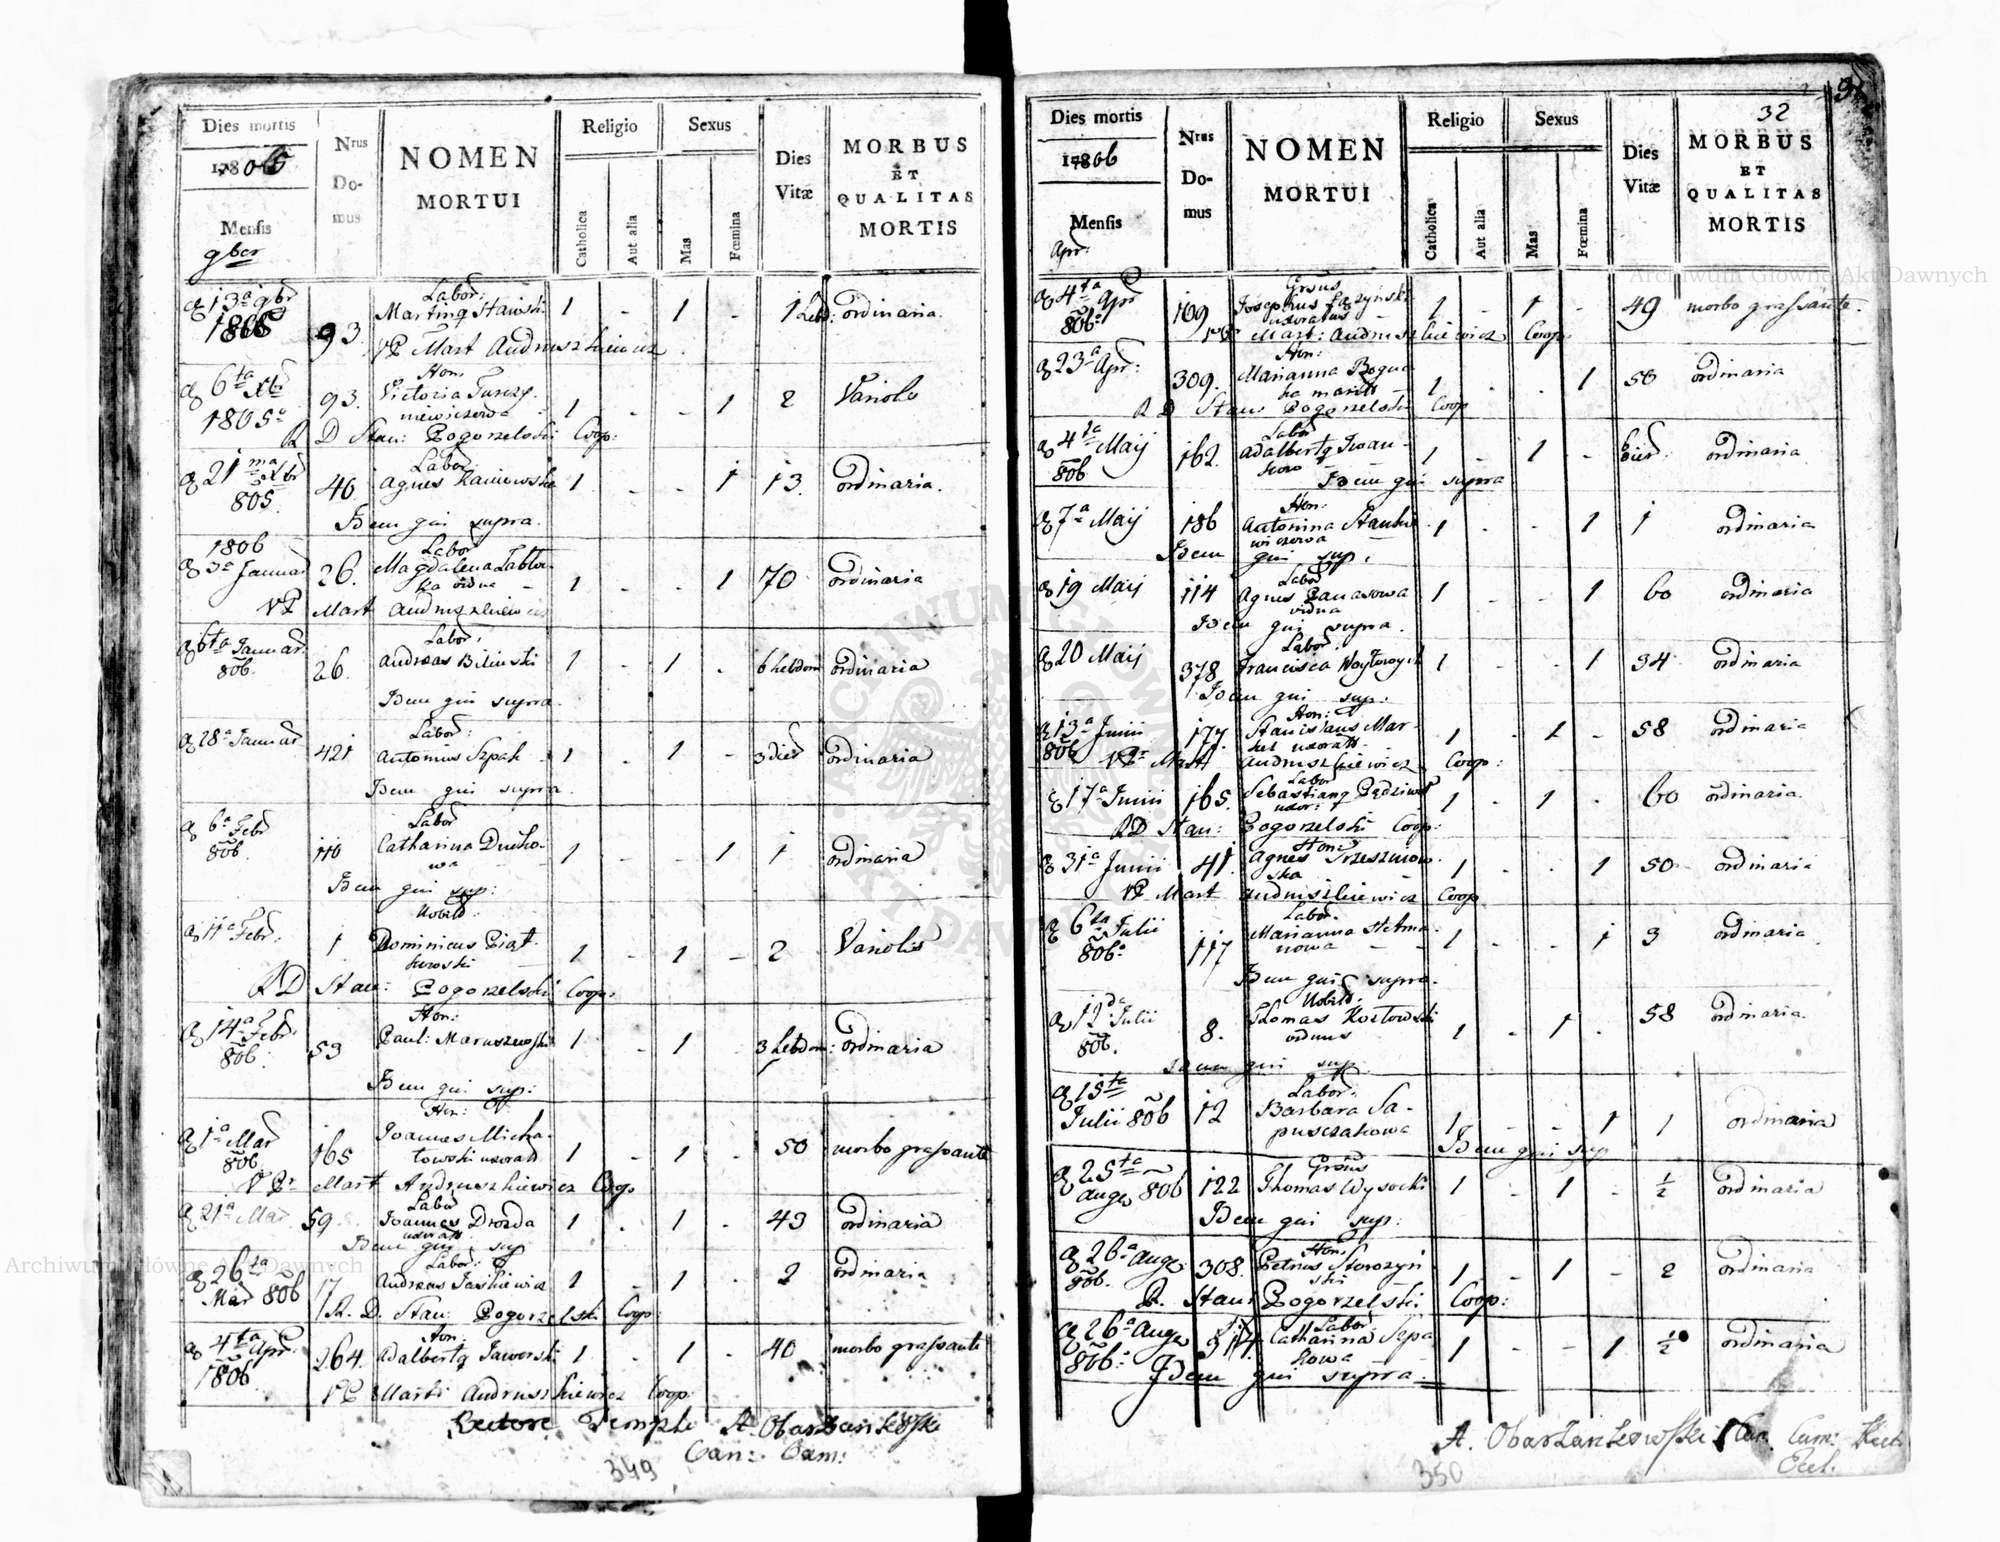 Dies mortis
1805
Mensis
9ber
Nrus
Do-
mus
NOMEN
MORTUI
Religio
Catholica
Aut alia
Sexus
Mas
Fœmina
Dies
Vitæ
MORBUS
ET
QUALITAS
MORTIS
Labor:
13a 9br 1805 93 Martinq Stawski 1 - 1 - 1 hebd: ordinaria.
VP Mart Andruszkiewicz
Hon:
6ta Xbr 1805o 93. Victoria 1 - - 1 2 Variole
R D Stan: Pogorzelski Coop:
Labor
21ma Xbr 805 46. Agnes Kaniewska 1 - - 1 13. ordinaria.
Idem qui supra.
1806
Labor
3a Januar 26. Magdalena 1 - - 1 70 ordinaria
VP Mart Andruszkiewicz
Labor:
6ta Januar 806. 26. Andreas Bilinski 1 - 1 - 6 hebdom ordinaria
Idem qui supra.
Labor:
28a Januar 421 Antonius Szpak 1 - 1 - 3 dier ordinaria
Idem qui supra.
Labor
6a Febr 806. 110 Catharina Ducho-
wa 1 - - 1 1 ordinaria
Idem qui sup:
Nobilis
11a Febr. 1 Dominicus Piąt-
kowski 1 - 1 - 2 Variolis
RD Stan: Pogorzelski Coop:
Hon:
14a Febr. 806. 53 Paul: Maruszewski 1 - 1 - 3 hebdom: ordinaria
Idem qui sup:
Hon:
1a Mar 806. 165 Joannes Micha-
łowski uxorat 1 - 1 - 50 morbo grassante
VP Mart Andruszkiewicz Coop
Labor
21a Mar. 59. Joannes Drozda
uxorat 1 - 1 - 43 ordinaria
Idem qui sup
Labor:
26ta Mar 806 17 Andreas Jaskiewicz 1 - 1 - 2 ordinaria
R. D. Stan: Pogorzelski Coop:
Hon:
4ta Apr. 1806. 264. Adalbertq Jaworski 1 - 1 - 40 morbo grassante
VP Mart: Andruszkiewicz Coop:
Rectore Templi A. Obarzankowski
Can: Cam:
349
32
Dies mortis
1806
Mensis
Apr:
Nrus
Do-
mus
NOMEN
MORTUI
Religio
Catholica
Aut alia
Sexus
Mas
Fœmina
Dies
Vitæ
MORBUS
ET
QUALITAS
MORTIS
4ta Apr 806. 109 Josephus Łazynski
uxoratus 1 - 1 - 49 morbo grassante.
VP Mart: Andruszkiewicz Coop.
Hon:
23a Apr: 309. Marianna 1 - - 1 50 ordinaria
R D Stan Pogorzelski Coop
Labor
4ta Maij 806 162. Adalbertq Iwan-
1 - 1 - 6 dier: ordinaria
Idem qui supra
Hon:
7a Maij 186 Antonina Stankie-
wiczowa 1 - - 1 1 ordinaria
Idem qui sup:
Labor
19 Maij 114 Agnes Panasowa
vidua 1 - - 1 60 ordinaria
Idem qui supra.
Labor:
20 Maij 378 Francisca 1 - - 1 34 ordinaria
Idem qui sup:
Hon:
13a Junii 806 177. Stanislaus Mar-
kel uxorat. 1 - 1 - 58 ordinaria
VP Mart Andruszkiewicz Coop:
Labor
17a Junii 165. Sebastianq 1 - 1 - 60 ordinaria.
RD Stan: Pogorzelski Coop:
Hon:
31a Junii 41. Agnes Trzeszniow-
ska 1 - - 1 50 ordinaria
VP Mart Andruszkiewicz Coop
Labor.
6ta Julii 806. 117 Marianna Hetma-
nowa 1 - - 1 3 ordinaria
Idem qui supra.
Nobilis.
12da Julii 806. 8. Thomas Kozłowski
viduus 1 - 1 - 58 ordinaria
Idem qui sup.
Labor:
15ta Julii 806 12 Barbara Sa-
puszakowa 1 - - 1 1 ordinaria
Idem qui sup
25ta Aug 806 122 Thomas Wysocki 1 - 1 - ½ ordinaria
Idem qui sup:
Hon:
26a Aug. 806. 308. Petrus Storozyn-
ski 1 - 1 - 2 ordinaria
R. Stan: Pogorzelski Coop:
Labor
26a Aug 806. 314. Catharina Szpa-
kowa 1 - - 1 ½ ordinaria
Idem qui supra
A. Obarzankowski Can. Cam: Rect.
Eccl.
350
Archiwum Główne Akt Dawnych
Archiwum Główne Akt Dawnych
ARCHIWUM GŁÓWNE AKT DAWNYCH